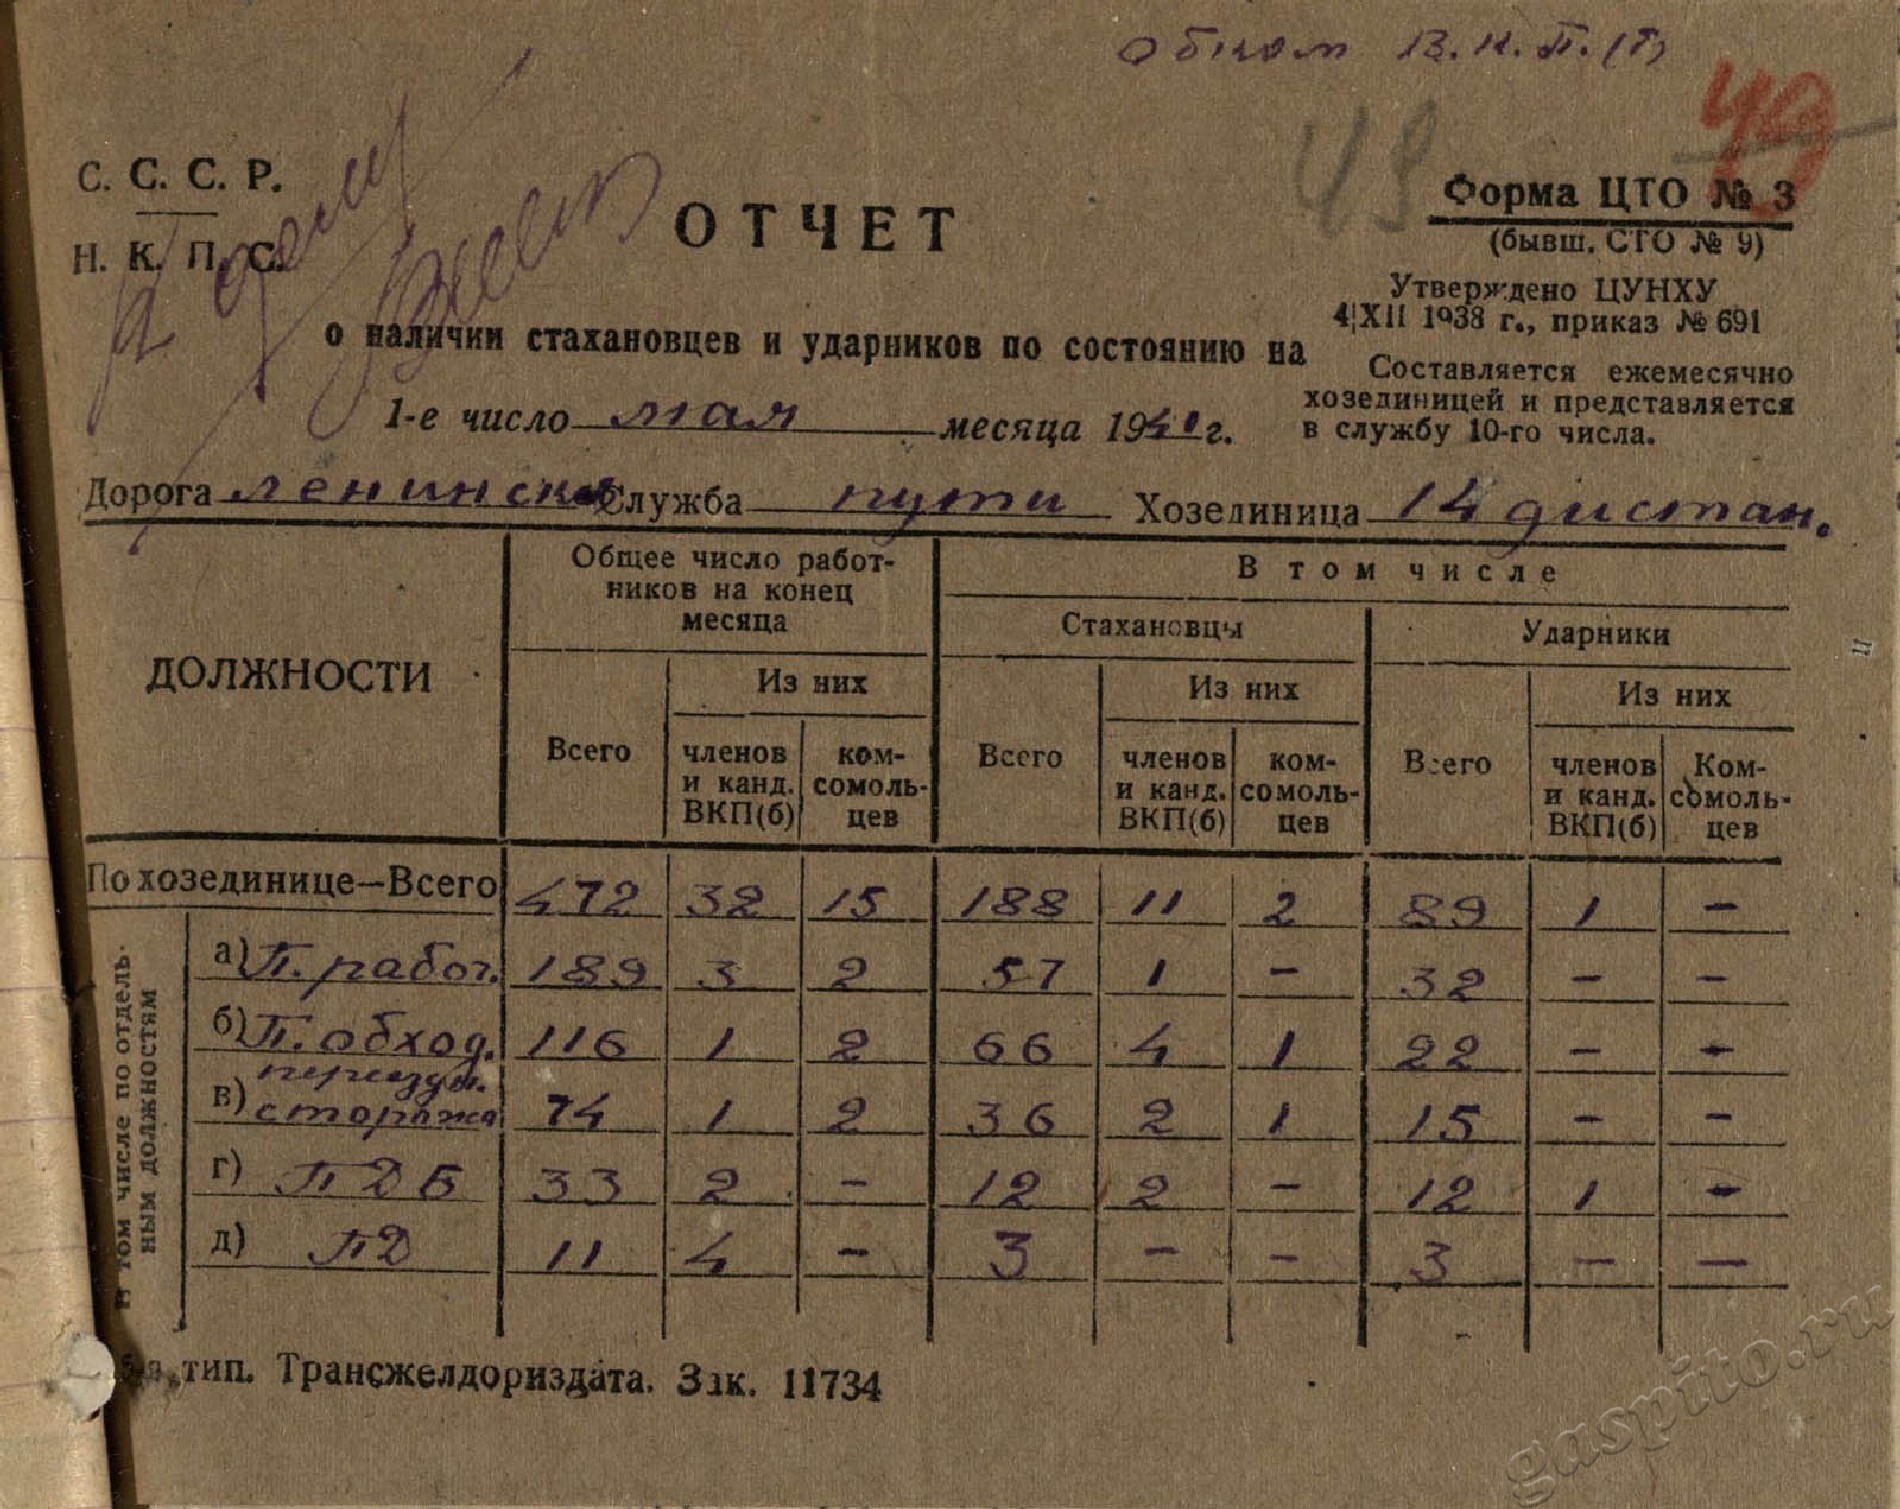 Обком В.К.П.(б)
49
49
С. С. С. Р.
Н. К. П. С.
К делу
ОТЧЕТ
Форма ЦТО № 3
(бывш. СТО № 9)
Утверждено ЦУНХУ
4/XII 1938 г., приказ № 691
о наличии стахановцев и ударников по состоянию на
Составляется ежемесячно
хозединицей и представляется
в службу 10-го числа.
1-е число мая месяца 1940 г.
Дорога Ленинская Служба пути Хозединица 14 дистан.
ДОЛЖНОСТИ
Общее число работ-
ников на конец
месяца
В том числе
Стахановцы Ударники
Из них Из них Из них
Всего членов и канд. ВКП(б) ком-сомоль-цев Всего членов и канд. ВКП(б) ком-сомоль-цев Всего членов и канд. ВКП(б) Ком-сомоль-цев
По хозединице—Всего 472 32 15 188 11 2 89 1 -
В том числе по отдель-
ным должностям
а) П. рабоч. 189 3 2 57 1 - 32 - -
б) П. обход. 116 1 2 66 4 1 22 - -
в) переездн. сторожа 74 1 2 36 2 1 15 - -
г) ПДБ 33 2 - 12 2 - 12 1 -
д) ПД 11 4 - 3 - - 3 - -
тип. Трансжелдориздата. Зак. 11734
gaspito.ru